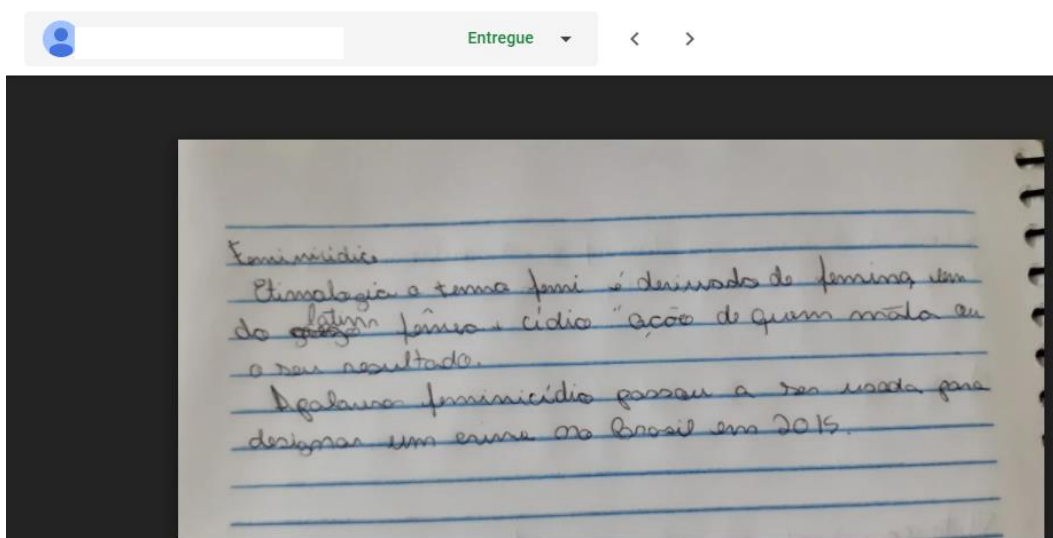 Entregue
Feminicídio
Etimologia o termo femi é derivado de femina, vem
do latim fêmea. cídio "ação de quem mata ou
o seu resultado.
A palavra feminicídio passou a ser usada para
designar um crime no Brasil em 2015.